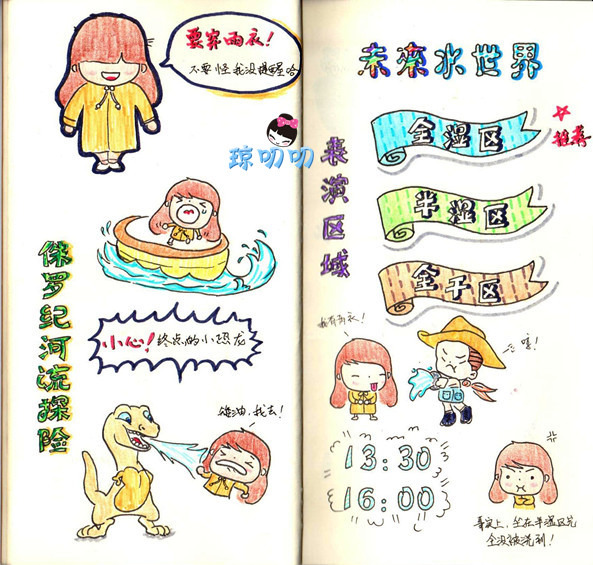 要穿雨衣!
不要怪我没提醒哈
琼叨叨
侏罗纪河流探险
小心!终点的小恐龙
我去!
未来水世界
表演区域
全湿区
推荐
半湿区
全干区
我有雨衣!
13:30
16:00
事实上,坐在半湿区完
全没被浇到!